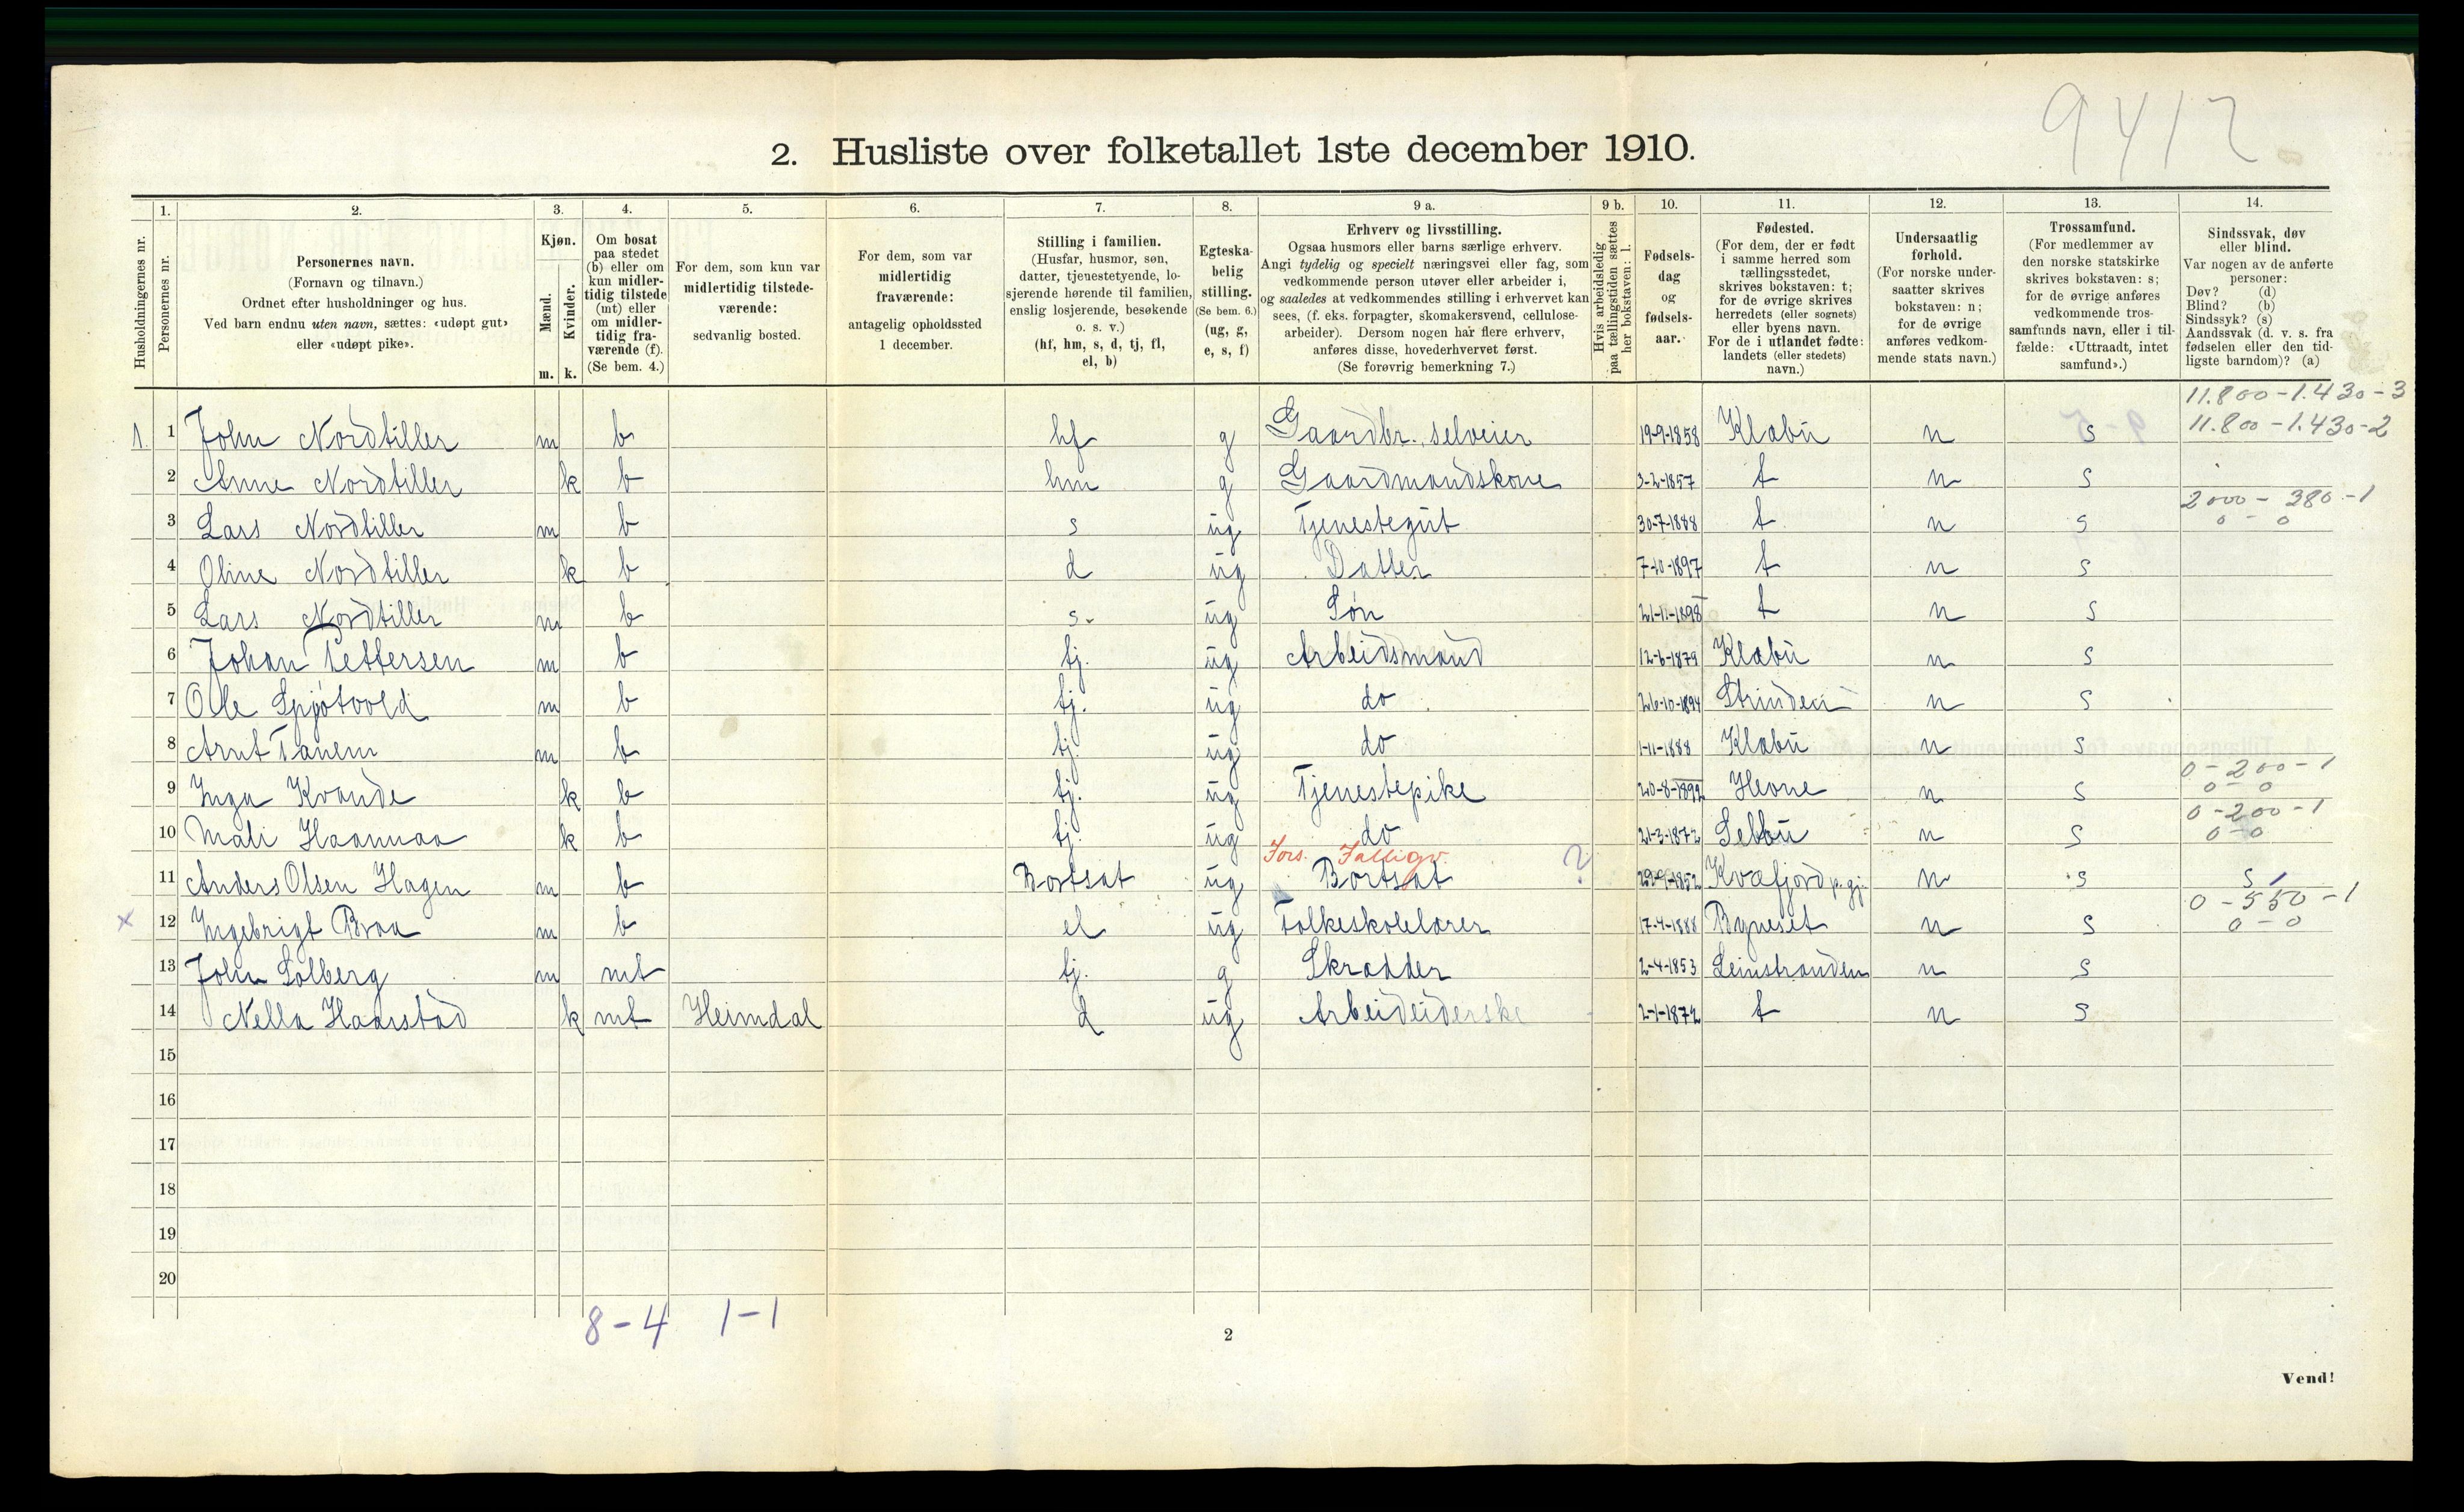 9412
2. Husliste over folketallet 1ste december 1910.
Husholdningernes nr.
1. Personernes nr.
2. Personernes navn. (Fornavn og tilnavn.) Ordnet efter husholdninger og hus. Ved barn endnu uten navn, sættes: «udøpt gut» eller «udøpt pike».
3. Kjøn. Mænd. m. Kvinder. k.
4. Om bosat paa stedet (b) eller om kun midlertidig tilstede (mt) eller om midlertidig fraværende (f). (Se bem. 4.)
5. For dem, som kun var midlertidig tilstedeværende: sedvanlig bosted.
6. For dem, som var midlertidig fraværende: antagelig opholdssted 1 december.
7. Stilling i familien. (Husfar, husmor, søn, datter, tjenestetyende, losjerende hørende til familien, enslig losjerende, besøkende o. s. v.) (hf, hm, s, d, tj, fl, el, b)
8. Egteskabelig stilling. (Se bem. 6.) (ug, g, e, s, f)
9 a. Erhverv og livsstilling. Ogsaa husmors eller barns særlige erhverv. Angi tydelig og specielt næringsvei eller fag, som vedkommende person utøver eller arbeider i, og saaledes at vedkommendes stilling i erhvervet kan sees, (f. eks. forpagter, skomakersvend, cellulosearbeider). Dersom nogen har flere erhverv, anføres disse, hovederhvervet først. (Se forøvrig bemerkning 7.)
9 b. Hvis arbeidsledig paa tællingstiden sættes her bokstaven: l.
10. Fødselsdag og fødselsaar.
11. Fødested. (For dem, der er født i samme herred som tællingsstedet, skrives bokstaven: t; for de øvrige skrives herredets (eller sognets) eller byens navn. For de i utlandet fødte: landets (eller stedets) navn.)
12. Undersaatlig forhold. (For norske undersaatter skrives bokstaven: n; for de øvrige anføres vedkommende stats navn.)
13. Trossamfund. (For medlemmer av den norske statskirke skrives bokstaven: s; for de øvrige anføres vedkommende trossamfunds navn, eller i tilfælde: «Uttraadt, intet samfund».)
14. Sindssvak, døv eller blind. Var nogen av de anførte personer: Døv? (d) Blind? (b) Sindssyk? (s) Aandssvak (d. v. s. fra fødselen eller den tidligste barndom)? (a)
11.800-1.430-3
1. 1 John Nordtiller m b hf g Gaardbr. selveier 19-9-1858 Klæbu n s 11.800-1.430-2
2 Anne Nordtiller k b hm g Gaardmandskone 3-2-1857 t n s
2000 - 380 - 1
3 Lars Nordtiller m b s ug Tjenestegut 30-7-1888 t n s 0 - 0
4 Oline Nordtiller k b d ug Datter 7-10-1897 t n s
5 Lars Nordtiller m b s. ug Søn 21-11-1898 t n s
6 Johan Pettersen m b tj. ug Arbeidsmand 12-6-1879 Klæbu n s
7 Ole Spjøtvold m b tj. ug do 26-10-1894 Strinden n s
8 Arnt Tanem m b tj. ug do 1-11-1888 Klæbu n s
0-200-1
9 Inga Kvande k b tj. ug Tjenestepike 20-8-1892 Hevne n s 0 - 0
0-200-1
10 Mali Haanmaa k b tj. ug do 21-3-1872 Selbu n s 0-0
Fors. Fattigv. ?
11 Anders Olsen Hagen m b Bortsat ug Bortsat 29-9-1852 Kvæfjord p.gj. n s s
0-550-1
x 12 Ingebrigt Braa m b el ug Folkeskolelærer 17-4-1888 Byneset n s 0-0
13 John Solberg m mt tj. g Skrædder 2-4-1853 Leinstranden n s
14 Nella Haarstad k mt Heimdal d ug Arbeideiderske 2-1-1872 t n s
15
16
17
18
19
20
8-4 1-1
2
Vend!